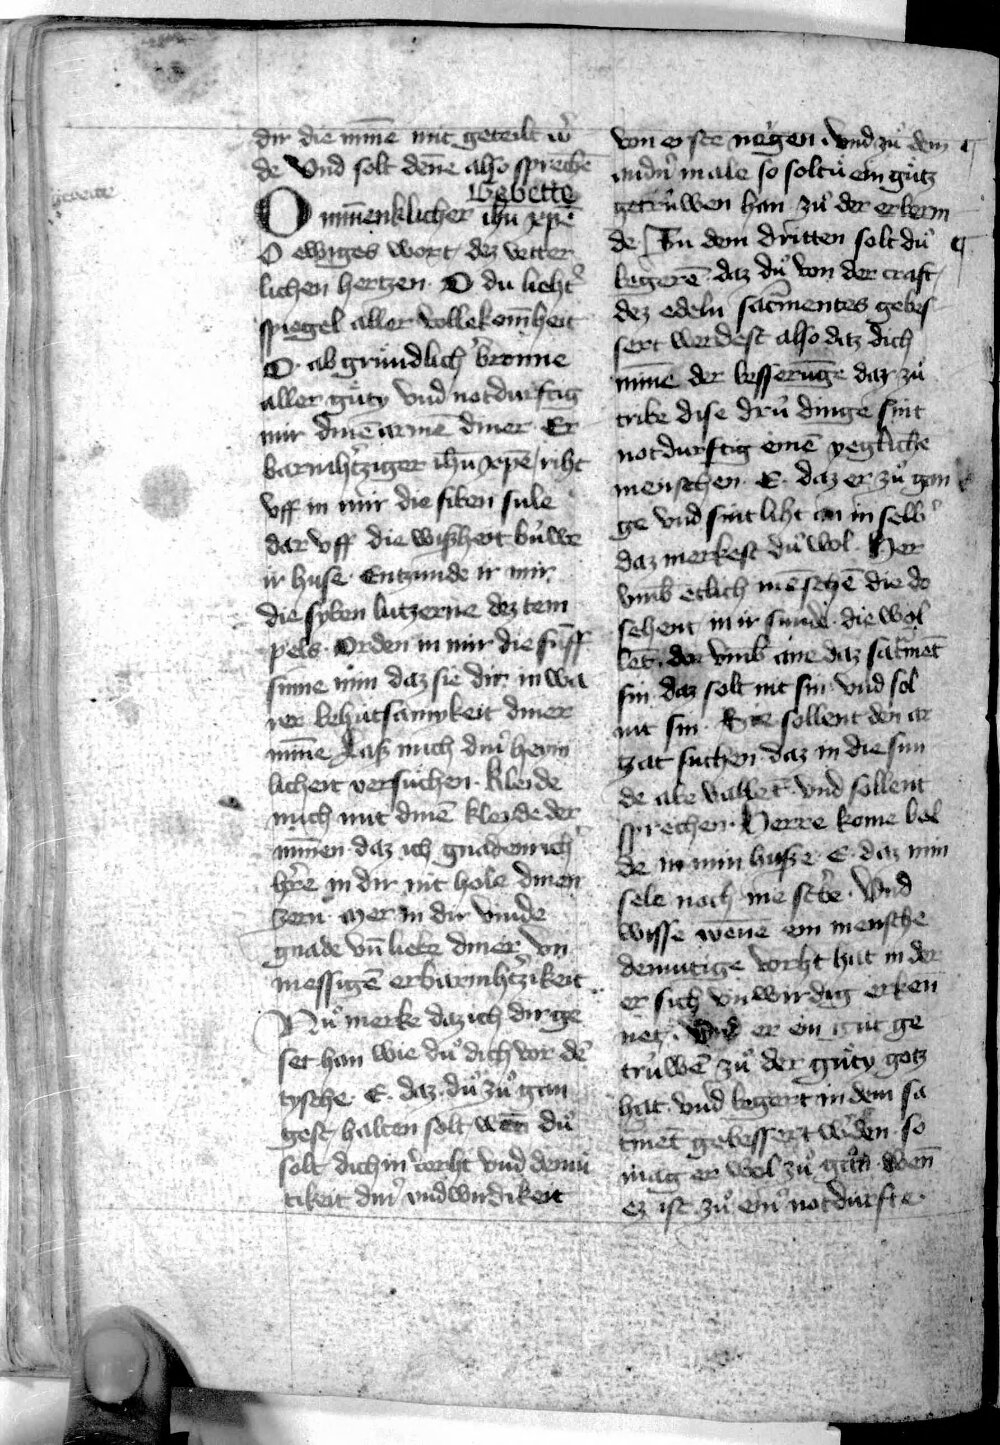 gebette
dir die miñe mit geteilt w̉
de Vnd solt deñe also sprechē
Gebette
O miñenklicher ihu xpē
O ewiges wort dez vetter
lichen hertzen · O du lieht̉
spiegel aller vollekom̄heit
O · abgrúndlich bronne
aller gúty vnd notdurftig
mir dinē armē diner Er
barmh̉tziger ihū xpē riht
vff in mir die siben sule
dar vff die wißheit búwe
ir huse · Entzunde ir mir
die syben lutzerne dez tem
pels · Orden in mir die fúff
sinne min daz sie dir in wa
rer behutsamykeit diner
miñe Laß mich din̉ heim
licheit versuchen · kleide
mich mit dinē kleide der
minnen daz ich gnadenrich
h̉re in dir nit hole dinen
zorn mer in dir vinde
gnade vn̄ liebe diner vn
messigē erbarmh̉tzikeit
Nů merke daz ich dir ge
set han wie dů dich vor dē
tysche · E · daz dů zů gan
gest halten solt wen̄ dů
solt dich in vorht vnd demů
tikeit din̉ vndwirdikeit
von erste nöygen · vnd zů dem
andn̉ male so soltu ein gůtz
getrúwen han zů der erberm
de · Zu dem dritten solt dů
begerē daz dů von der craft
dez edeln sac̄mentes gebes
sert werdest also daz dich
miñe der besserunge dar zů
tribe dise drú dinge sint
notdurftig eimē yegliche
menschen · E · daz er zů gan
ge vnd sint liht an in selb̉
daz merkest dů wol · Her
vmb etlich mēschē die do
sehent in ir sunde · die wol
lēt · dar vmb ane daz sac̉mēt
sin daz solt nit sin vnd sol
nit sin · Sie sollent den ar
tzat suchen daz in die sun
de abe vallēt vnd sollent
sprechen · Herre kome bal
de in min husze · E · daz min
sele noch me st̉be · Vnd
wisse wenne ein mensche
demutige vorht hat in der
er sich vnwirdig erken
net · Vnd er ein gut ge
trúwē zů der gúty gotz
hat vnd begert in dem sa
c̉mēt gebessert w̉den · so
mag er wol zů gan wen̄
ez ist zů ein̉ notdurfte ·